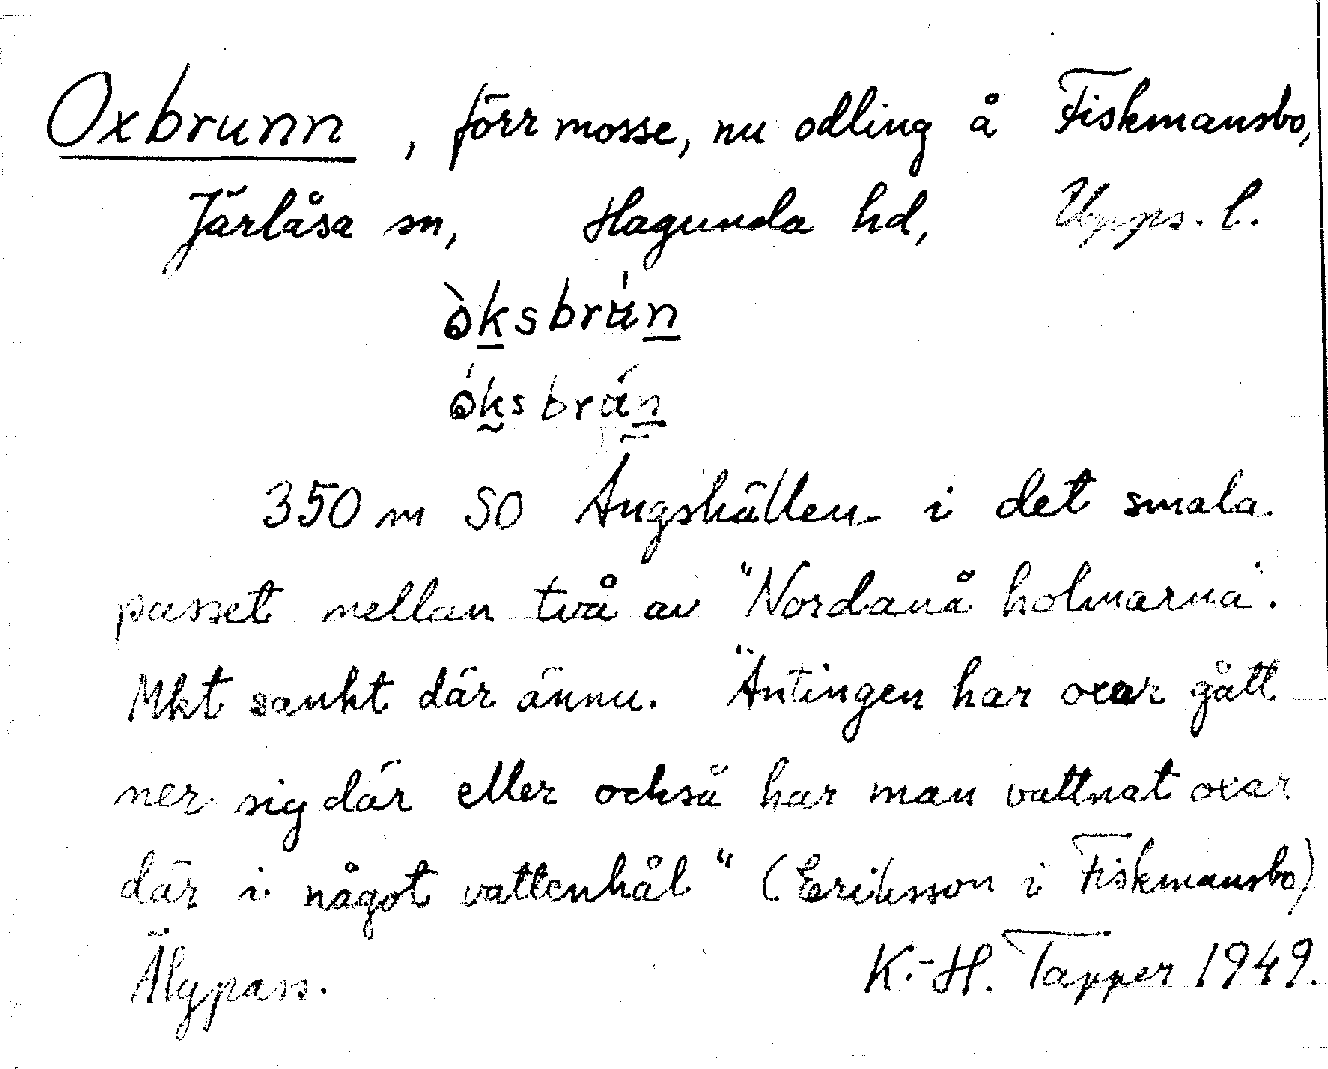 Oxbrunn, förr mosse, nu odling å Fiskmansbo,
Järlåsa sn, Hagunda hd, Upps. l.
òksbrún
óksbrún
350 m SO Ängshällen i det smala
passet mellan två av "Nordanå holmarna".
Mkt sankt där ännu. "Antingen har oxar gått
ner sig där eller också har man vattnat oxar
där i något vattenhål" (Eriksson i Fiskmansbo)
Älgpass. K.-H. Tapper 1949.